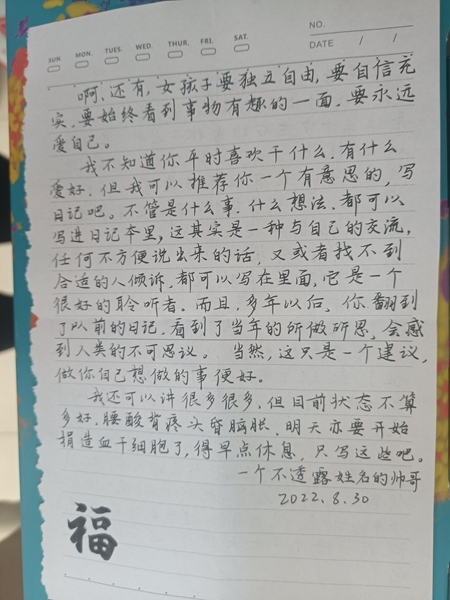 NO.
SUN. MON. TUES. WED. THUR. FRI. SAT.
DATE / /
啊,还有,女孩子要独立自由,要自信充
实,要始终看到事物有趣的一面,要永远
爱自己。
我不知道你平时喜欢干什么,有什么
爱好,但我可以推荐你一个有意思的,写
日记吧。不管是什么事,什么想法,都可以
写进日记本里,这其实是一种与自己的交流,
任何不方便说出来的话,又或者找不到
合适的人倾诉,都可以写在里面,它是一个
很好的聆听者。而且,多年以后,你翻到
了以前的日记,看到了当年的所做所思,会感
到人类的不可思议。当然,这只是一个建议,
做你自己想做的事便好。
我还可以讲很多很多,但目前状态不算
多好,腰酸背疼头昏脑胀,明天亦要开始
捐造血干细胞了,得早点休息,只写这些吧。
一个不透露姓名的帅哥
2022.8.30
福